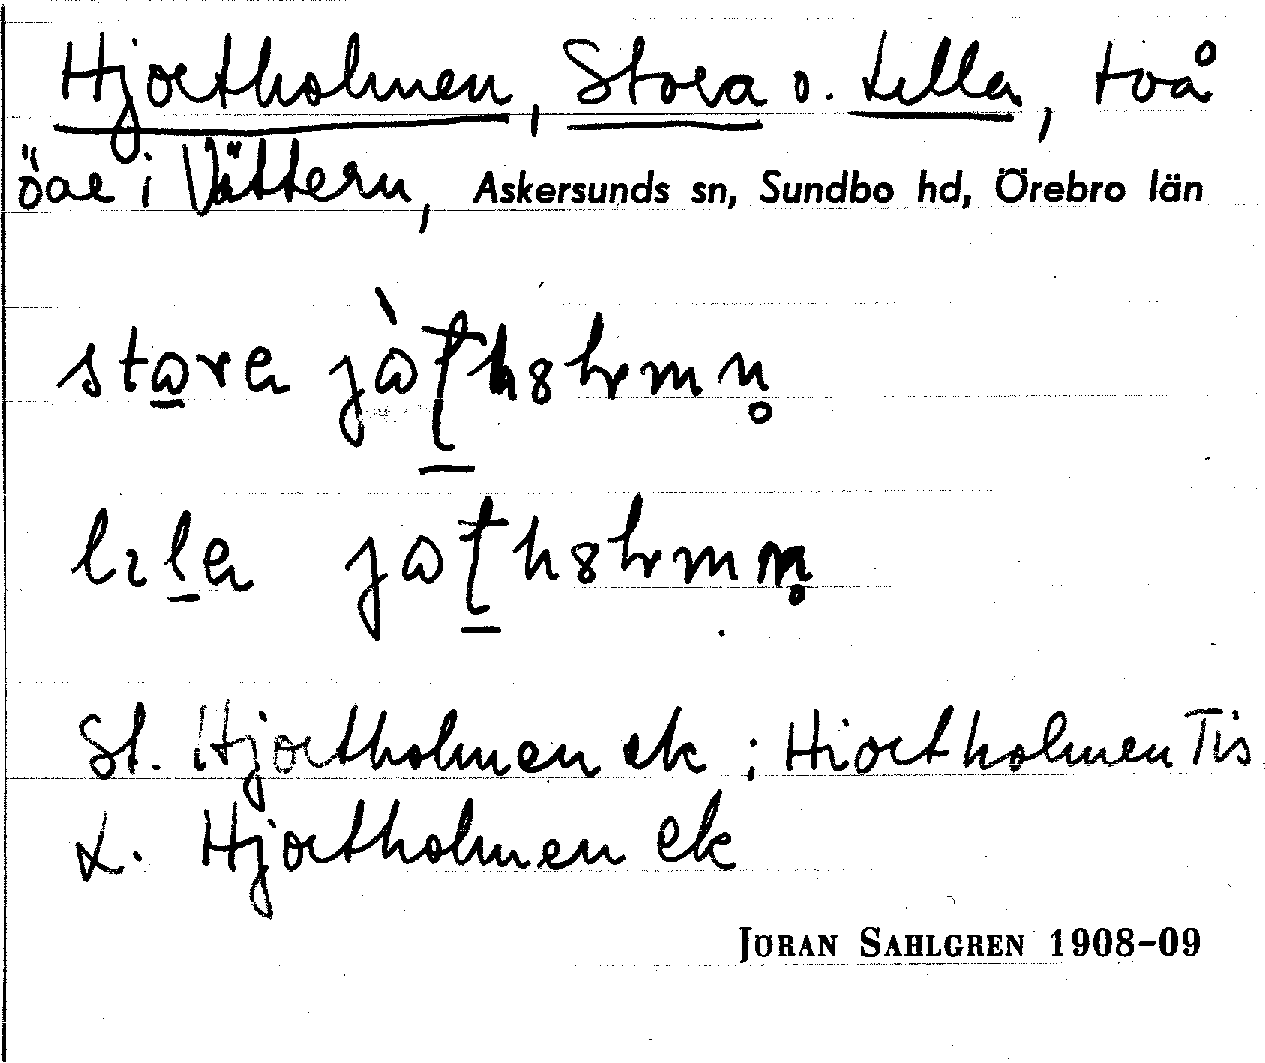 Hjortholmen, Stora o. Lilla, två
öar i Vättern, Askersunds sn, Sundbo hd, Örebro län
stɷra jɷ̀ʈh8lmn̥
lɩla jɷʈh8lmn̥
St. Hjortholmen ek ; Hiortholmen Tis
L. Hjortholmen ek
JÖRAN SAHLGREN 1908-09